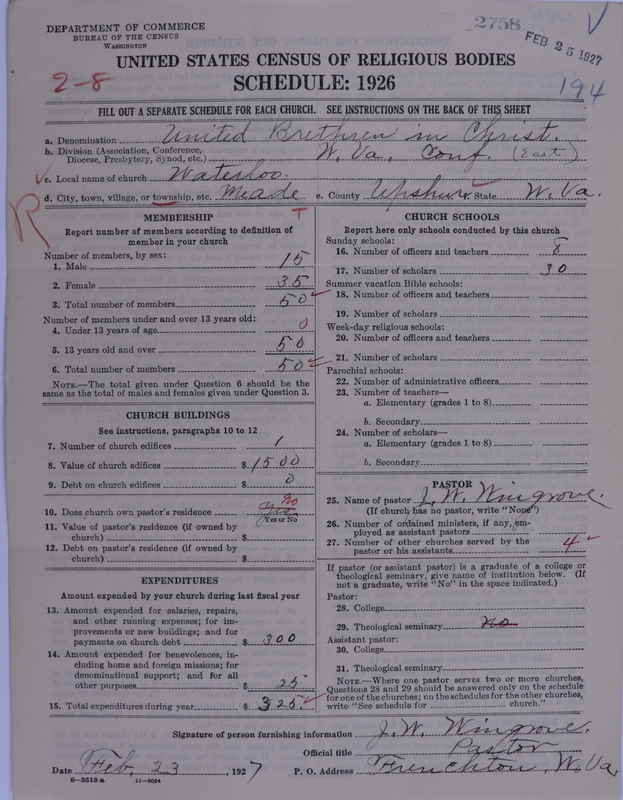 DEPARTMENT OF COMMERCE
BUREAU OF THE CENSUS
WASHINGTON
2758
FEB 25 1927
UNITED STATES CENSUS OF RELIGIOUS BODIES
2-8
SCHEDULE: 1926
194
FILL OUT A SEPARATE SCHEDULE FOR EACH CHURCH. SEE INSTRUCTIONS ON THE BACK OF THIS SHEET
a. Denomination United Brethren in Christ.
b. Division (Association, Conference, Diocese, Presbytery, Synod, etc.) W. Va. Conf. (East)
c. Local name of church Waterloo.
d. City, town, village, or township, etc. Meade e. County Upshur State W. Va.
R
MEMBERSHIP
Report number of members according to definition of
member in your church
Number of members, by sex:
1. Male 15
2. Female 35
3. Total number of members 50
Number of members under and over 13 years old:
4. Under 13 years of age 0
5. 13 years old and over 50
6. Total number of members 50
NOTE.—The total given under Question 6 should be the
same as the total of males and females given under Question 3.
CHURCH BUILDINGS
See instructions, paragraphs 10 to 12
7. Number of church edifices 1
8. Value of church edifices $1500
9. Debt on church edifices $ 0
10. Does church own pastor's residence Yes no
Yes or No
11. Value of pastor's residence (if owned by
church) $
12. Debt on pastor's residence (if owned by
church) $
EXPENDITURES
Amount expended by your church during last fiscal year
13. Amount expended for salaries, repairs,
and other running expenses; for im-
provements or new buildings; and for
payments on church debt $ 300
14. Amount expended for benevolences, in-
cluding home and foreign missions; for
denominational support; and for all
other purposes $ 25
15. Total expenditures during year $ 325
CHURCH SCHOOLS
Report here only schools conducted by this church
Sunday schools:
16. Number of officers and teachers 8
17. Number of scholars 30
Summer vacation Bible schools:
18. Number of officers and teachers
19. Number of scholars
Week-day religious schools:
20. Number of officers and teachers
21. Number of scholars
Parochial schools:
22. Number of administrative officers
23. Number of teachers—
a. Elementary (grades 1 to 8)
b. Secondary
24. Number of scholars—
a. Elementary (grades 1 to 8)
b. Secondary
PASTOR
25. Name of pastor J. W. Wingrove.
(If church has no pastor, write "None")
26. Number of ordained ministers, if any, em-
ployed as assistant pastors
27. Number of other churches served by the
pastor or his assistants 4
If pastor (or assistant pastor) is a graduate of a college or
theological seminary, give name of institution below. (If
not a graduate, write "No" in the space indicated.)
Pastor:
28. College
29. Theological seminary no
Assistant pastor:
30. College
31. Theological seminary
NOTE.—Where one pastor serves two or more churches,
Questions 28 and 29 should be answered only on the schedule
for one of the churches; on the schedules for the other churches,
write "See schedule for church."
Signature of person furnishing information J. W. Wingrove.
Official title Pastor
Date Feb. 23, 1927 P. O. Address Frenchton, W. Va.
8-5518 a 11-9034